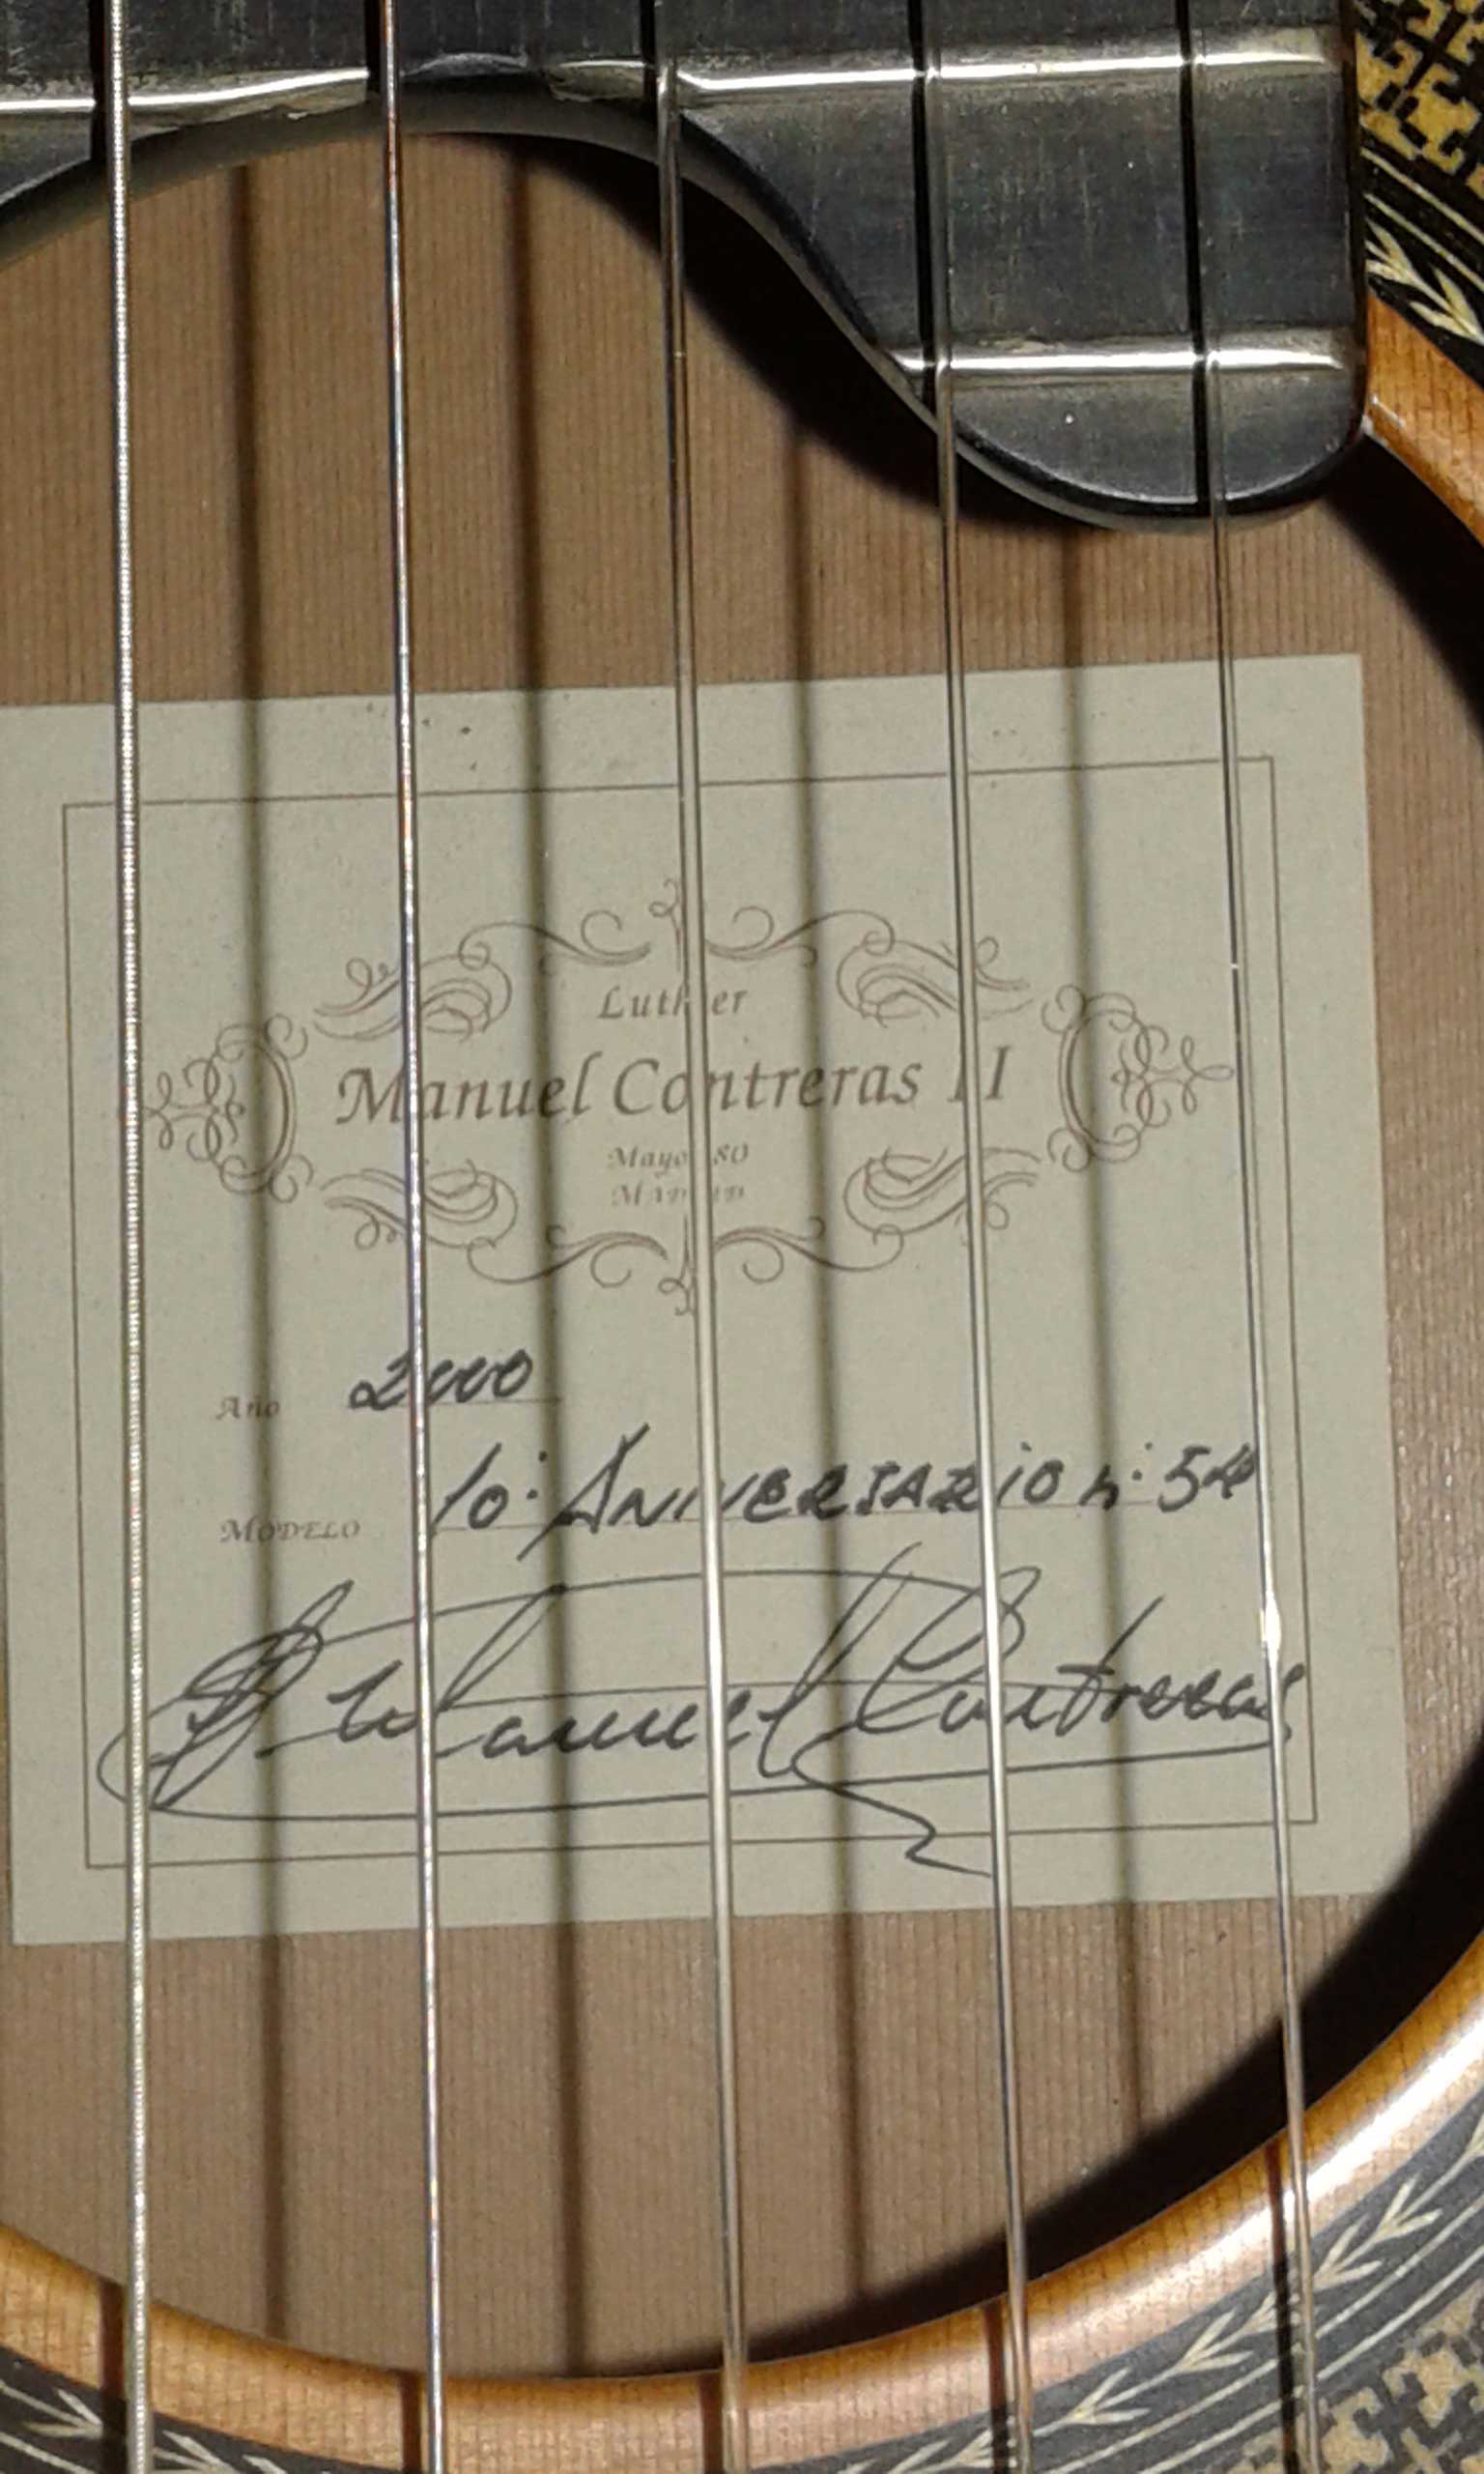 Luthier
Manuel Contreras II
Mayor 80
MADRID
Año 2000
MODELO 10º ANIVERSARIO nº 54
Manuel Contreras